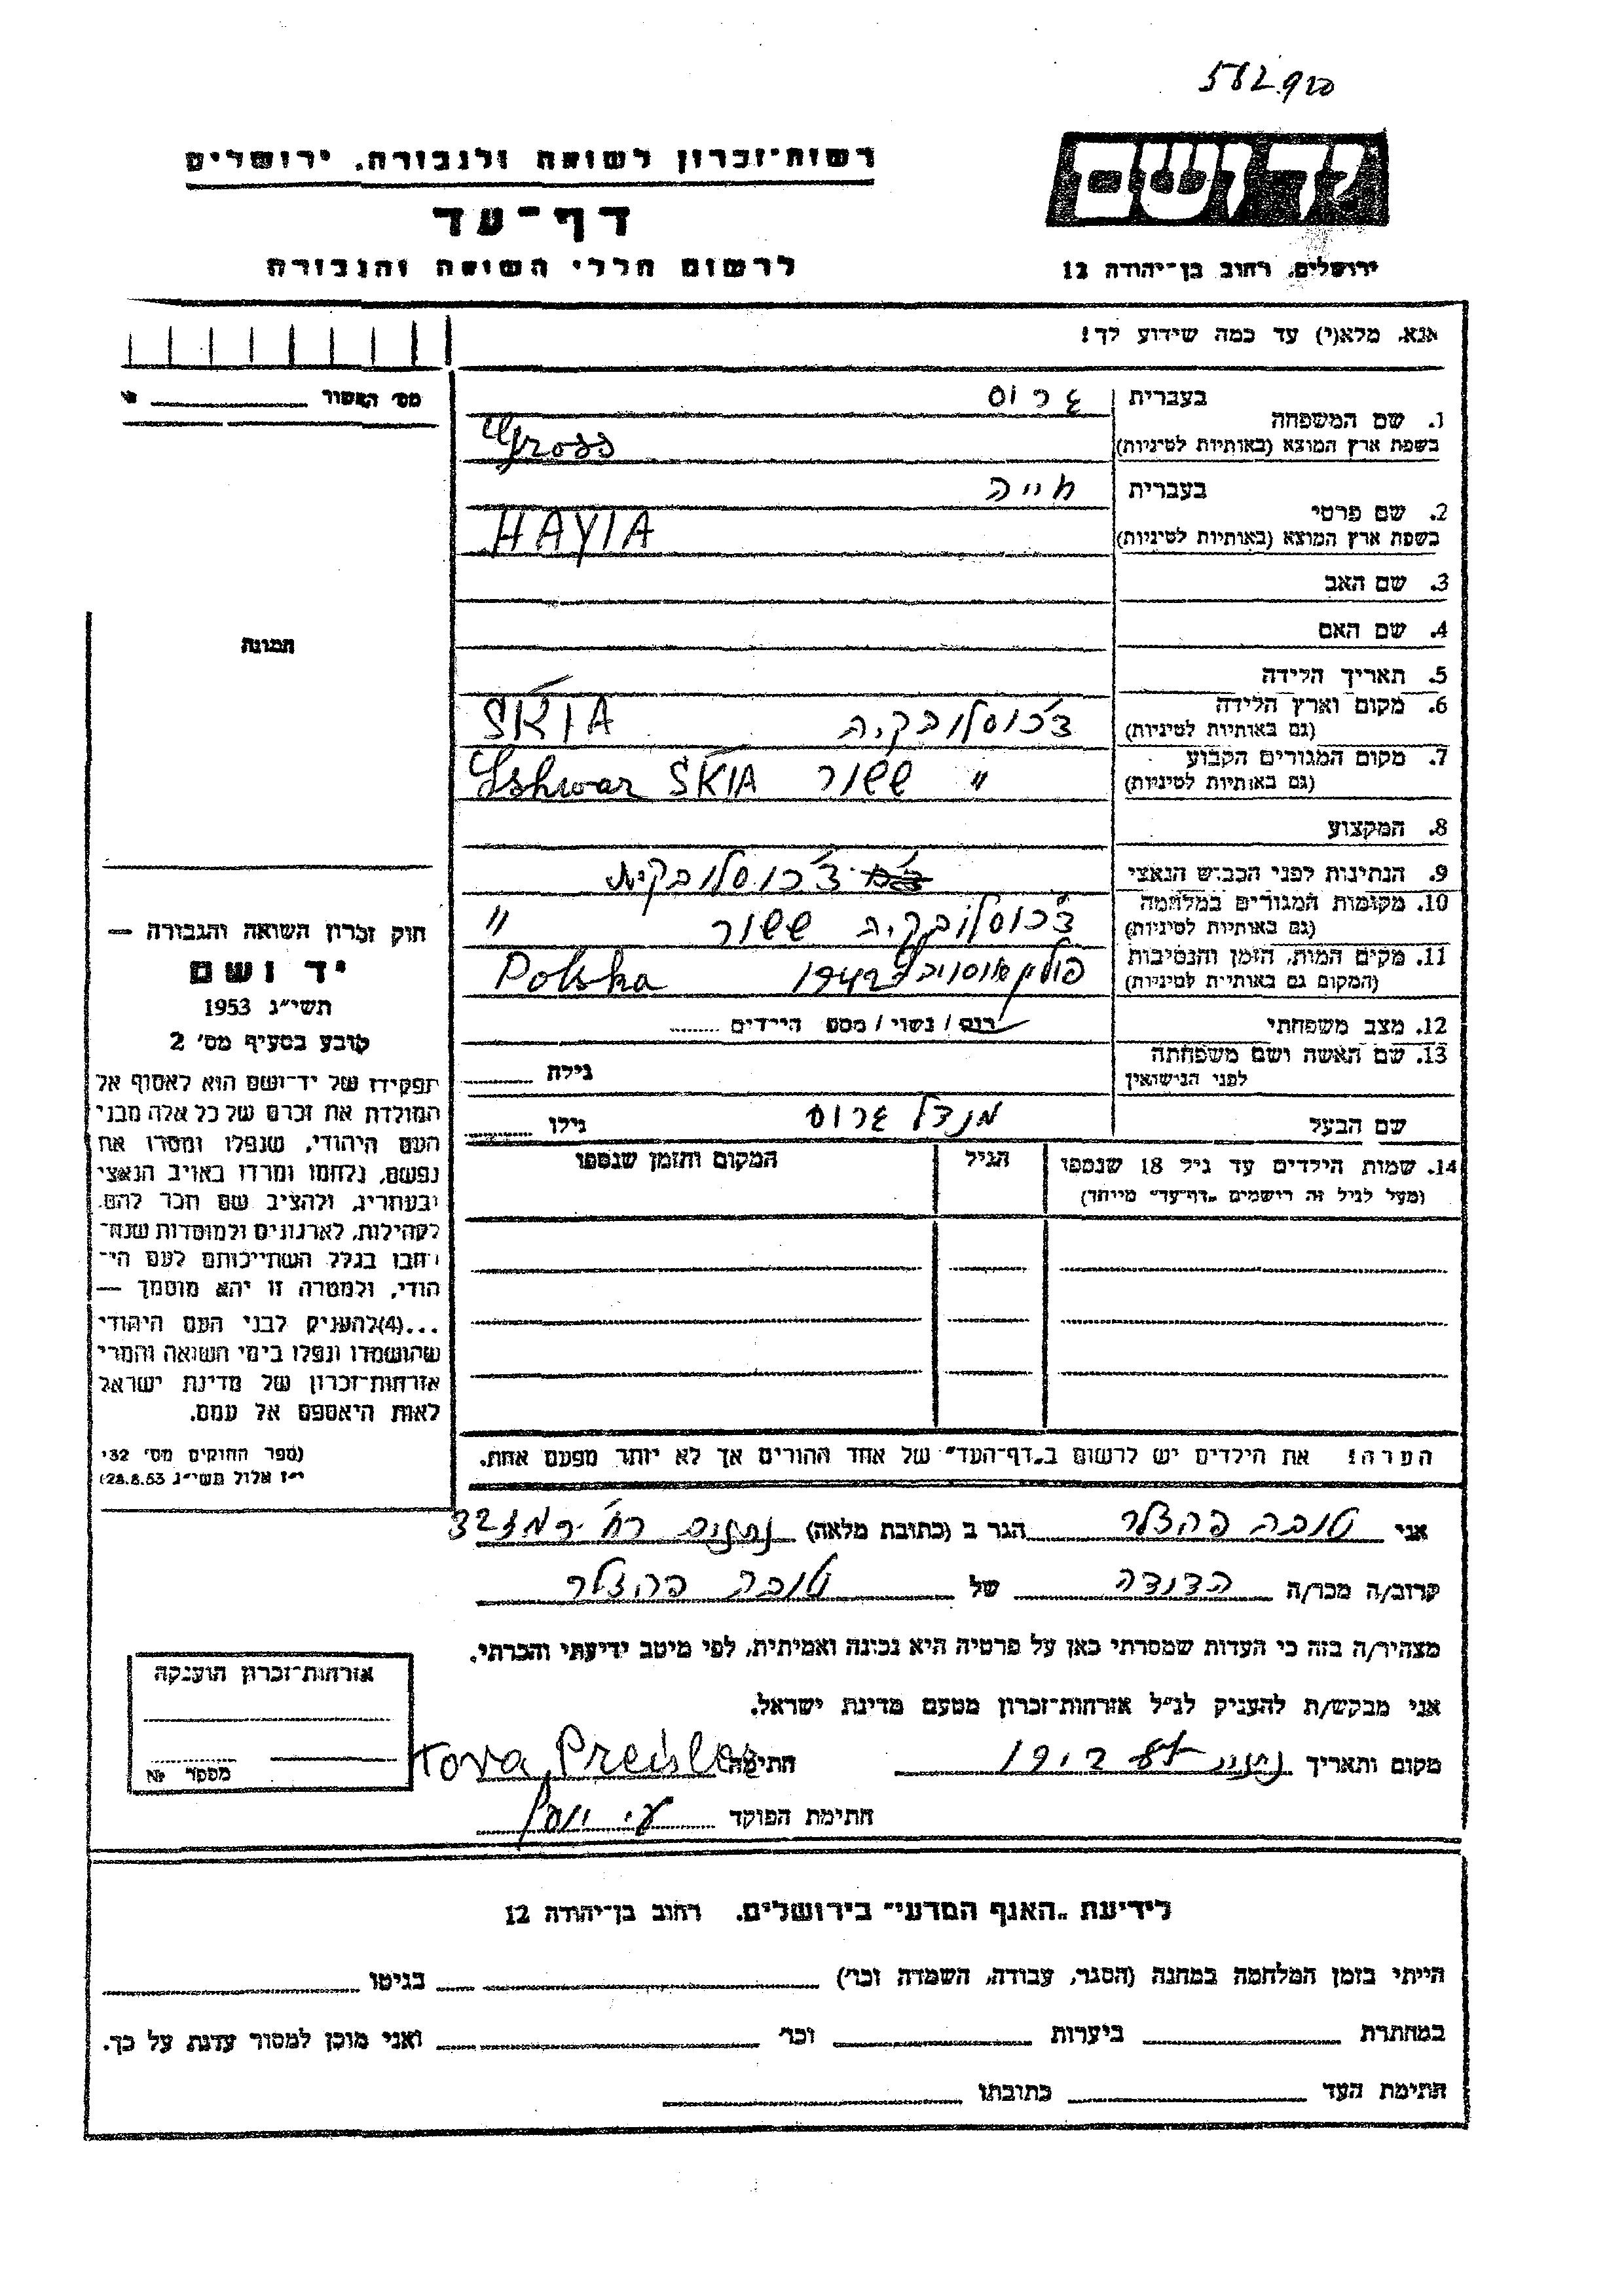 582920
רשות־זכרון לשואה ולגבורה, ירושלים
דף־עד
לרשום חללי השואה והגבורה
יד ושם
ירושלים, רחוב בן־יהודה 12
אנא, מלא(י) עד כמה שידוע לך!
מס׳ האשור
1. שם המשפחה
בעברית
גרוס
בשפת ארץ המוצא (באותיות לטיניות)
Gross
2. שם פרטי
בעברית
חייה
בשפת ארץ המוצא (באותיות לטיניות)
HAYIA
3. שם האב
4. שם האם
5. תאריך הלידה
6. מקום וארץ הלידה
(גם באותיות לטיניות)
צ׳כוסלובקיה SKIA
7. מקום המגורים הקבוע
(גם באותיות לטיניות)
״ ששור Yshwar SKIA
8. המקצוע
9. הנתינות לפני הכבוש הנאצי
צ׳כוסלובקית
10. מקומות המגורים במלחמה
(גם באותיות לטיניות)
צ׳כוסלובקיה ששור ״
11. מקום המות, הזמן והנסיבות
(המקום גם באותיות לטיניות)
פולין 1942 Polska
12. מצב משפחתי
רוק / נשוי / מספ הילדים ........
13. שם האשה ושם משפחתה
לפני הנישואין
גילה
שם הבעל
מנדל גרוס
גילו
14. שמות הילדים עד גיל 18 שנספו
(מעל לגיל זה רישמים „דף־עד״ מייחד)
הגיל
המקום והזמן שנספו
הערה! את הילדים יש לרשום ב„דף־העד״ של אחד ההורים אך לא יותר מפעם אחת.
תמונה
חוק זכרון השואה והגבורה —
יד ושם
תשי״ג 1953
קובע בסעיף מס׳ 2
תפקידו של יד־ושם הוא לאסוף אל
המולדת את זכרם של כל אלה מבני
העם היהודי, שנפלו ומסרו את
נפשם, נלחמו ומרדו באויב הנאצי
ובעוזריו, ולהציב שם וזכר להם,
לקהילות, לארגונים ולמוסדות שנח־
רבו בגלל השתייכותם לעם הי־
הודי, ולמטרה זו יהא מוסמך —
...(4)להעניק לבני העם היהודי
שהושמדו ונפלו בימי השואה והמרי
אזרחות־זכרון של מדינת ישראל
לאות היאספם אל עמם.
(ספר החוקים מס׳ 132
י״ז אלול תשי״ג 28.8.53)
אני טובה פרצלר הגר ב (כתובת מלאה) נתניה רח׳ רמז 32
קרוב/ה מכר/ה הדודה של טובה פרצלר
מצהיר/ה בזה כי העדות שמסרתי כאן על פרטיה היא נכונה ואמיתית, לפי מיטב ידיעתי והכרתי.
אני מבקש/ת להעניק לנ״ל אזרחות־זכרון מטעם מדינת ישראל.
מקום ותאריך נתניה חתימה Tova Preisler
חתימת הפוקד
אזרחות־זכרון הוענקה
מספר №
לידיעת „האגף המדעי״ בירושלים, רחוב בן־יהודה 12
הייתי בזמן המלחמה במחנה (הסגר, עבודה, השמדה וכו׳) בגיטו
במחתרת ביערות וכו׳ ואני מוכן למסור עדות על כך.
חתימת העד כתובתו